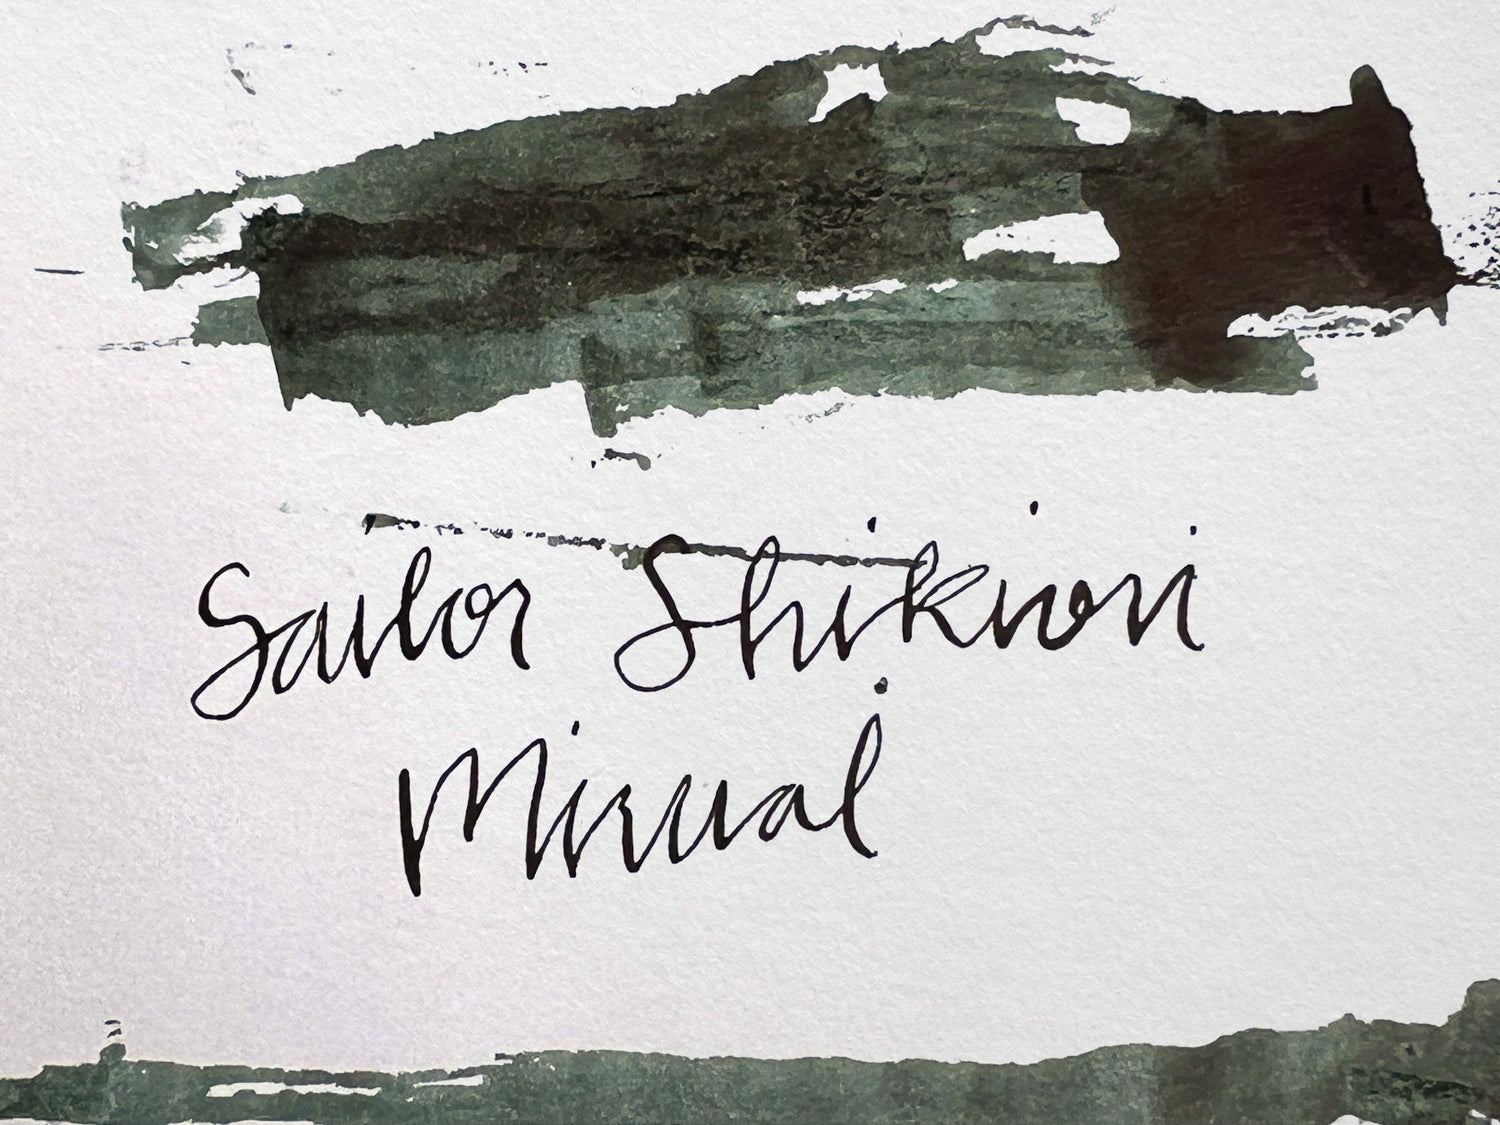 Sailor Shikiori
Miruai